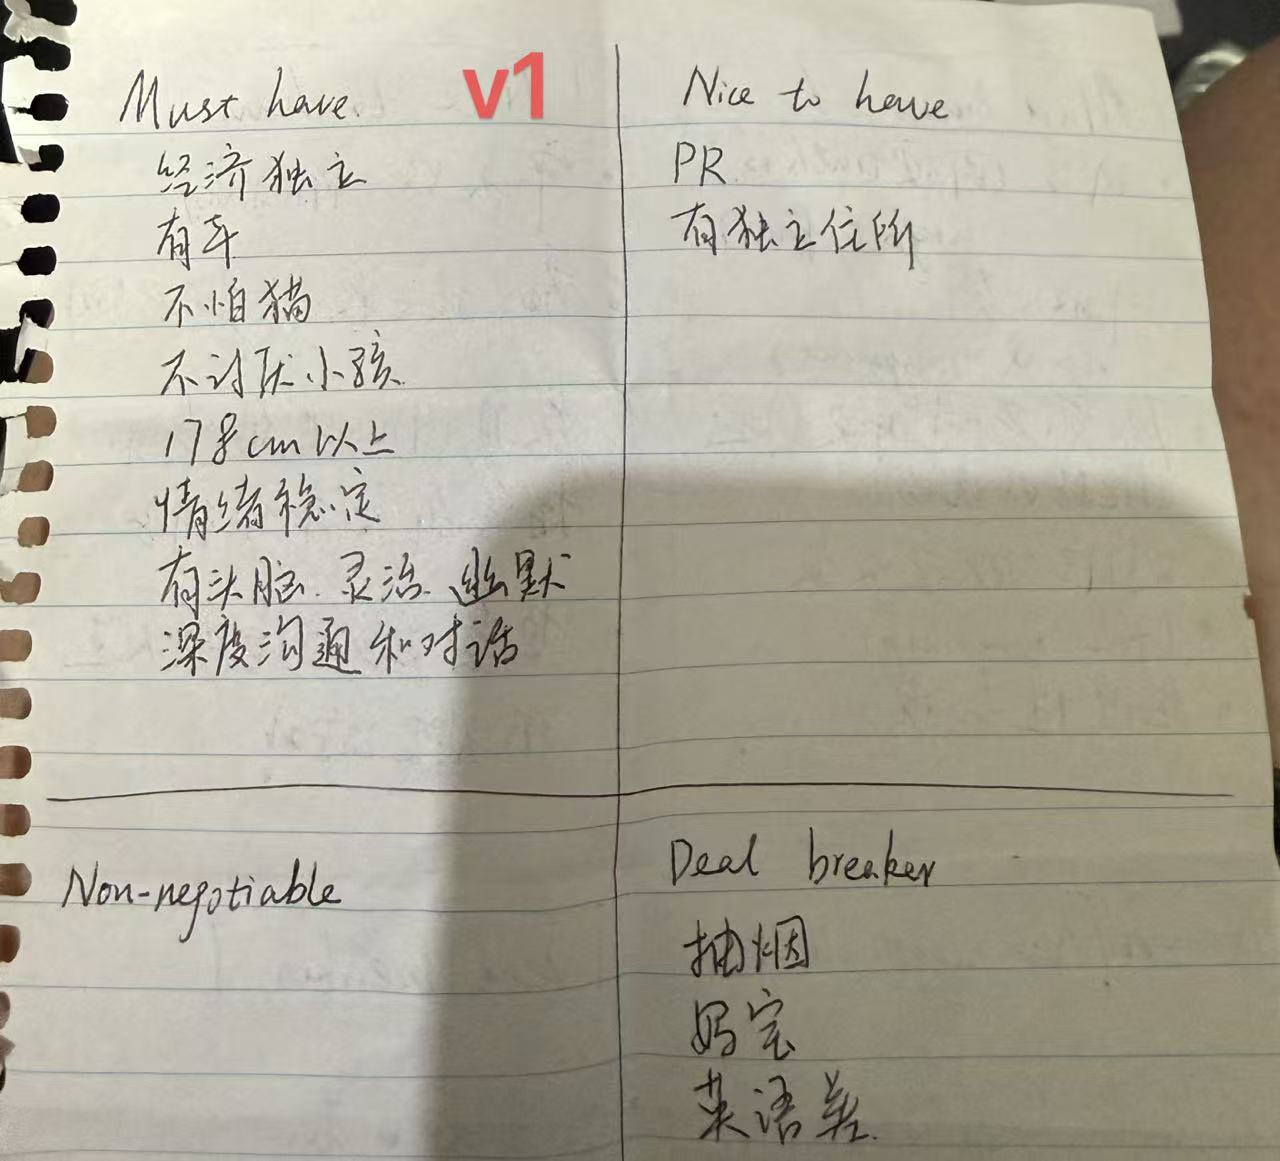 Must have.
v1
经济独立
有车
不怕猫
不讨厌小孩.
178cm以上
情绪稳定
有头脑.灵活.幽默
深度沟通和对话
Nice to have
PR
有独立住所
Non-negotiable
Deal breaker
抽烟
妈宝
英语差.